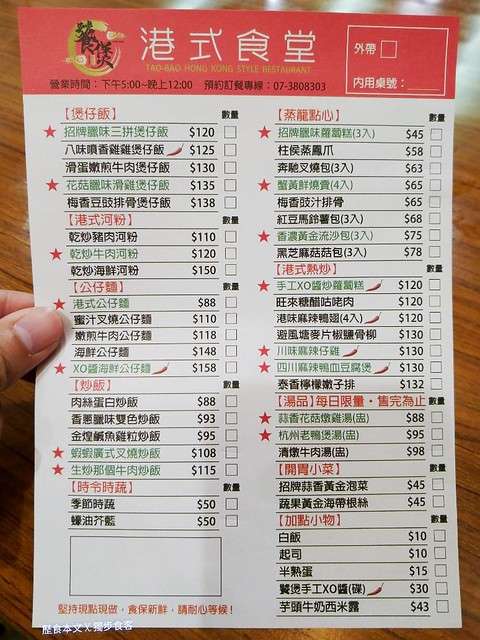 饕煲
港式食堂
TAO-BAO HONG KONG STYLE RESTAURANT
外帶
內用桌號：
營業時間：下午5:00~晚上12:00 預約訂餐專線：07-3808303
【煲仔飯】 數量
★ 招牌臘味三拼煲仔飯 $120
八味噴香雞雞煲仔飯 $125
滑蛋嫩煎牛肉煲仔飯 $130
★ 花菇臘味滑雞煲仔飯 $135
梅香豆豉排骨煲仔飯 $138
【港式河粉】 數量
乾炒豬肉河粉 $110
★ 乾炒牛肉河粉 $120
乾炒海鮮河粉 $150
【公仔麵】 數量
★ 港式公仔麵 $88
蜜汁叉燒公仔麵 $110
嫩煎牛肉公仔麵 $118
海鮮公仔麵 $148
★ XO醬海鮮公仔麵 $158
【炒飯】 數量
肉絲蛋白炒飯 $88
香蔥臘味雙色炒飯 $93
金煌鹹魚雞粒炒飯 $95
★ 蝦蝦廣式叉燒炒飯 $108
★ 生炒那個牛肉炒飯 $115
【時令時蔬】 數量
季節時蔬 $50
蠔油芥藍 $50
堅持現點現做，食保新鮮，請耐心等候！
【蒸籠點心】 數量
★ 招牌臘味蘿蔔糕(3入) $45
柱侯蒸鳳爪 $58
奔馳叉燒包(3入) $63
★ 蟹黃鮮燒賣(4入) $65
梅香豉汁排骨 $65
紅豆馬鈴薯包(3入) $68
★ 香濃黃金流沙包(3入) $75
黑芝麻菇菇包(3入) $78
【港式熱炒】 數量
★ 手工XO醬炒蘿蔔糕 $120
旺來糖醋咕咾肉 $120
港味麻辣鴨翅(4入) $120
避風塘麥片椒鹽骨柳 $130
★ 川味麻辣仔雞 $130
★ 四川麻辣鴨血豆腐煲 $130
泰香檸檬嫩子排 $132
【湯品】每日限量・售完為止 數量
★ 蒜香花菇燉雞湯(盅) $88
★ 杭州老鴨煲湯(盅) $95
清燉牛肉湯(盅) $98
【開胃小菜】 數量
招牌蒜香黃金泡菜 $45
蔬果黃金海帶根絲 $45
【加點小物】 數量
白飯 $10
起司 $10
半熟蛋 $15
饕煲手工XO醬(碟) $30
芋頭牛奶西米露 $43
歷食本文 X 獨步食客